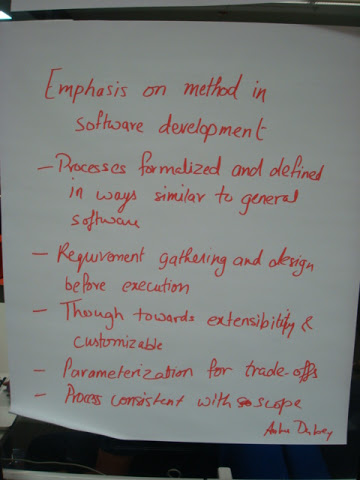 Emphasis on method in
software development
- Processes formalized and defined
in ways similar to general
software
- Requirement gathering and design
before execution
- Though towards extensibility &
customizable
- Parameterization for trade-offs
- Process consistent with scope